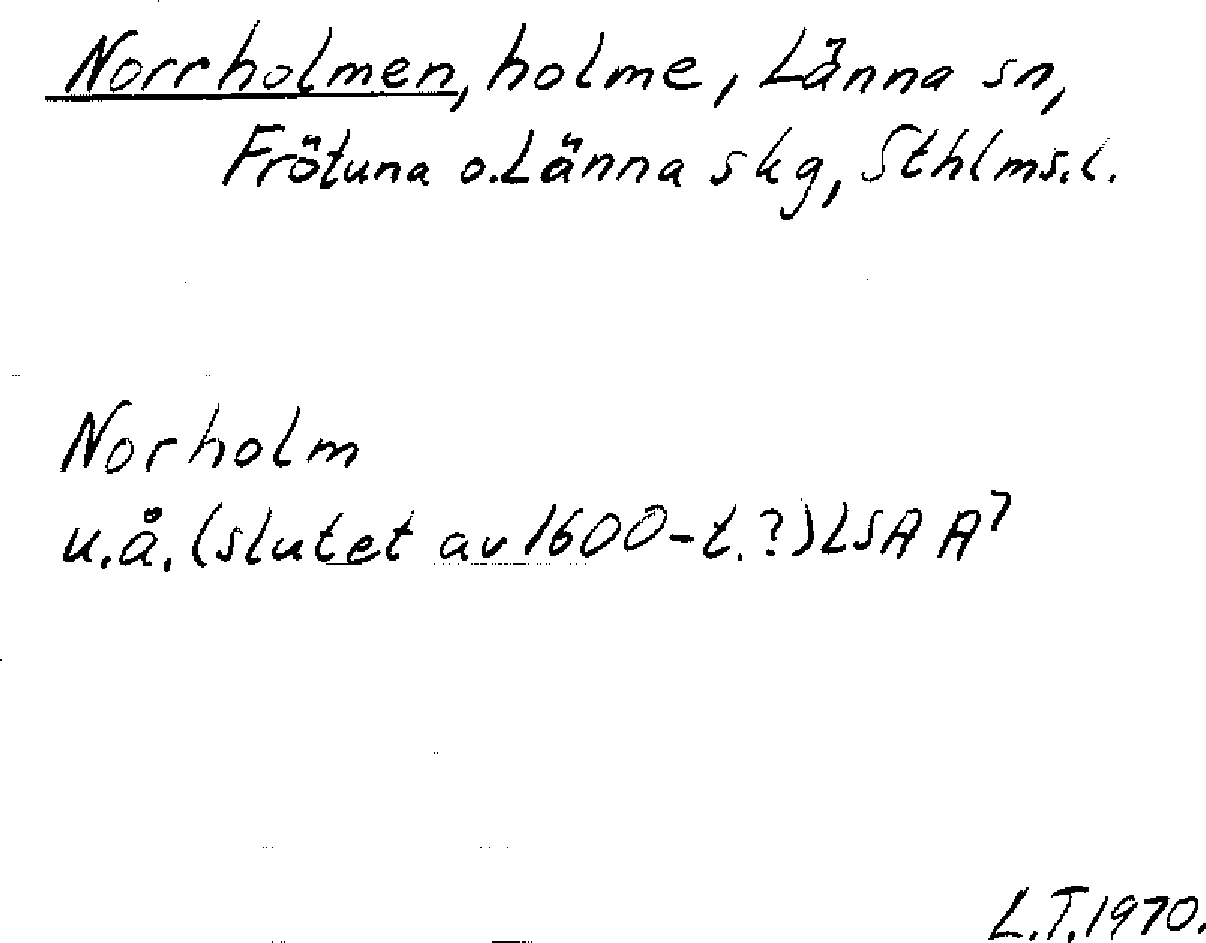 Norrholmen, holme, Länna sn,
Frötuna o. Länna skg, Sthlms.l.
Norholm
u.å. (slutet av 1600-t.?) LSA A7
L.T. 1970.